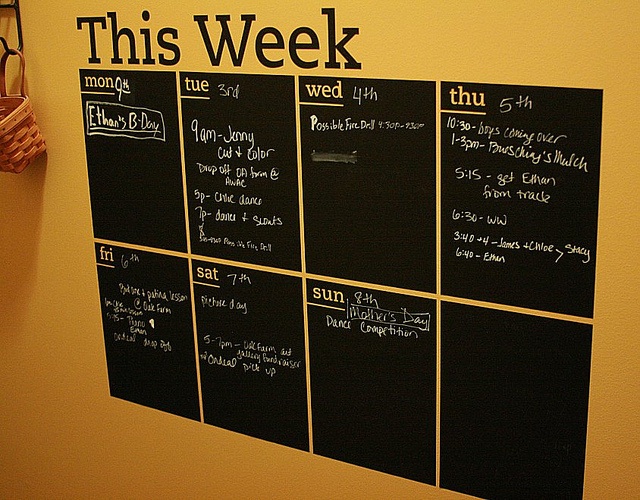 This Week
mon 9th
Ethan's B-Day
tue 3rd
9am - Jenny
cut & color
Drop off OA form @
AWAC
5p - Chloe dance
7p - dance & scouts
wed 4th
Possible Fire Drill 4:30p-
thu 5th
10:30 - boys coming over
1-3pm - Mulch
5:15 - get Ethan
from track
6:30 - WW
3:40 + 4 - James + Chloe > Stacy
6:40 - Ethan
fri 6th
lesson
@ Oak Farm
Piano
Ethan
Ordeal drop off
sat 7th
picture day
5-7pm - Oak Farm art
gallery fundraiser
Ordeal pick up
sun 8th
Mother's Day
Dance Competition